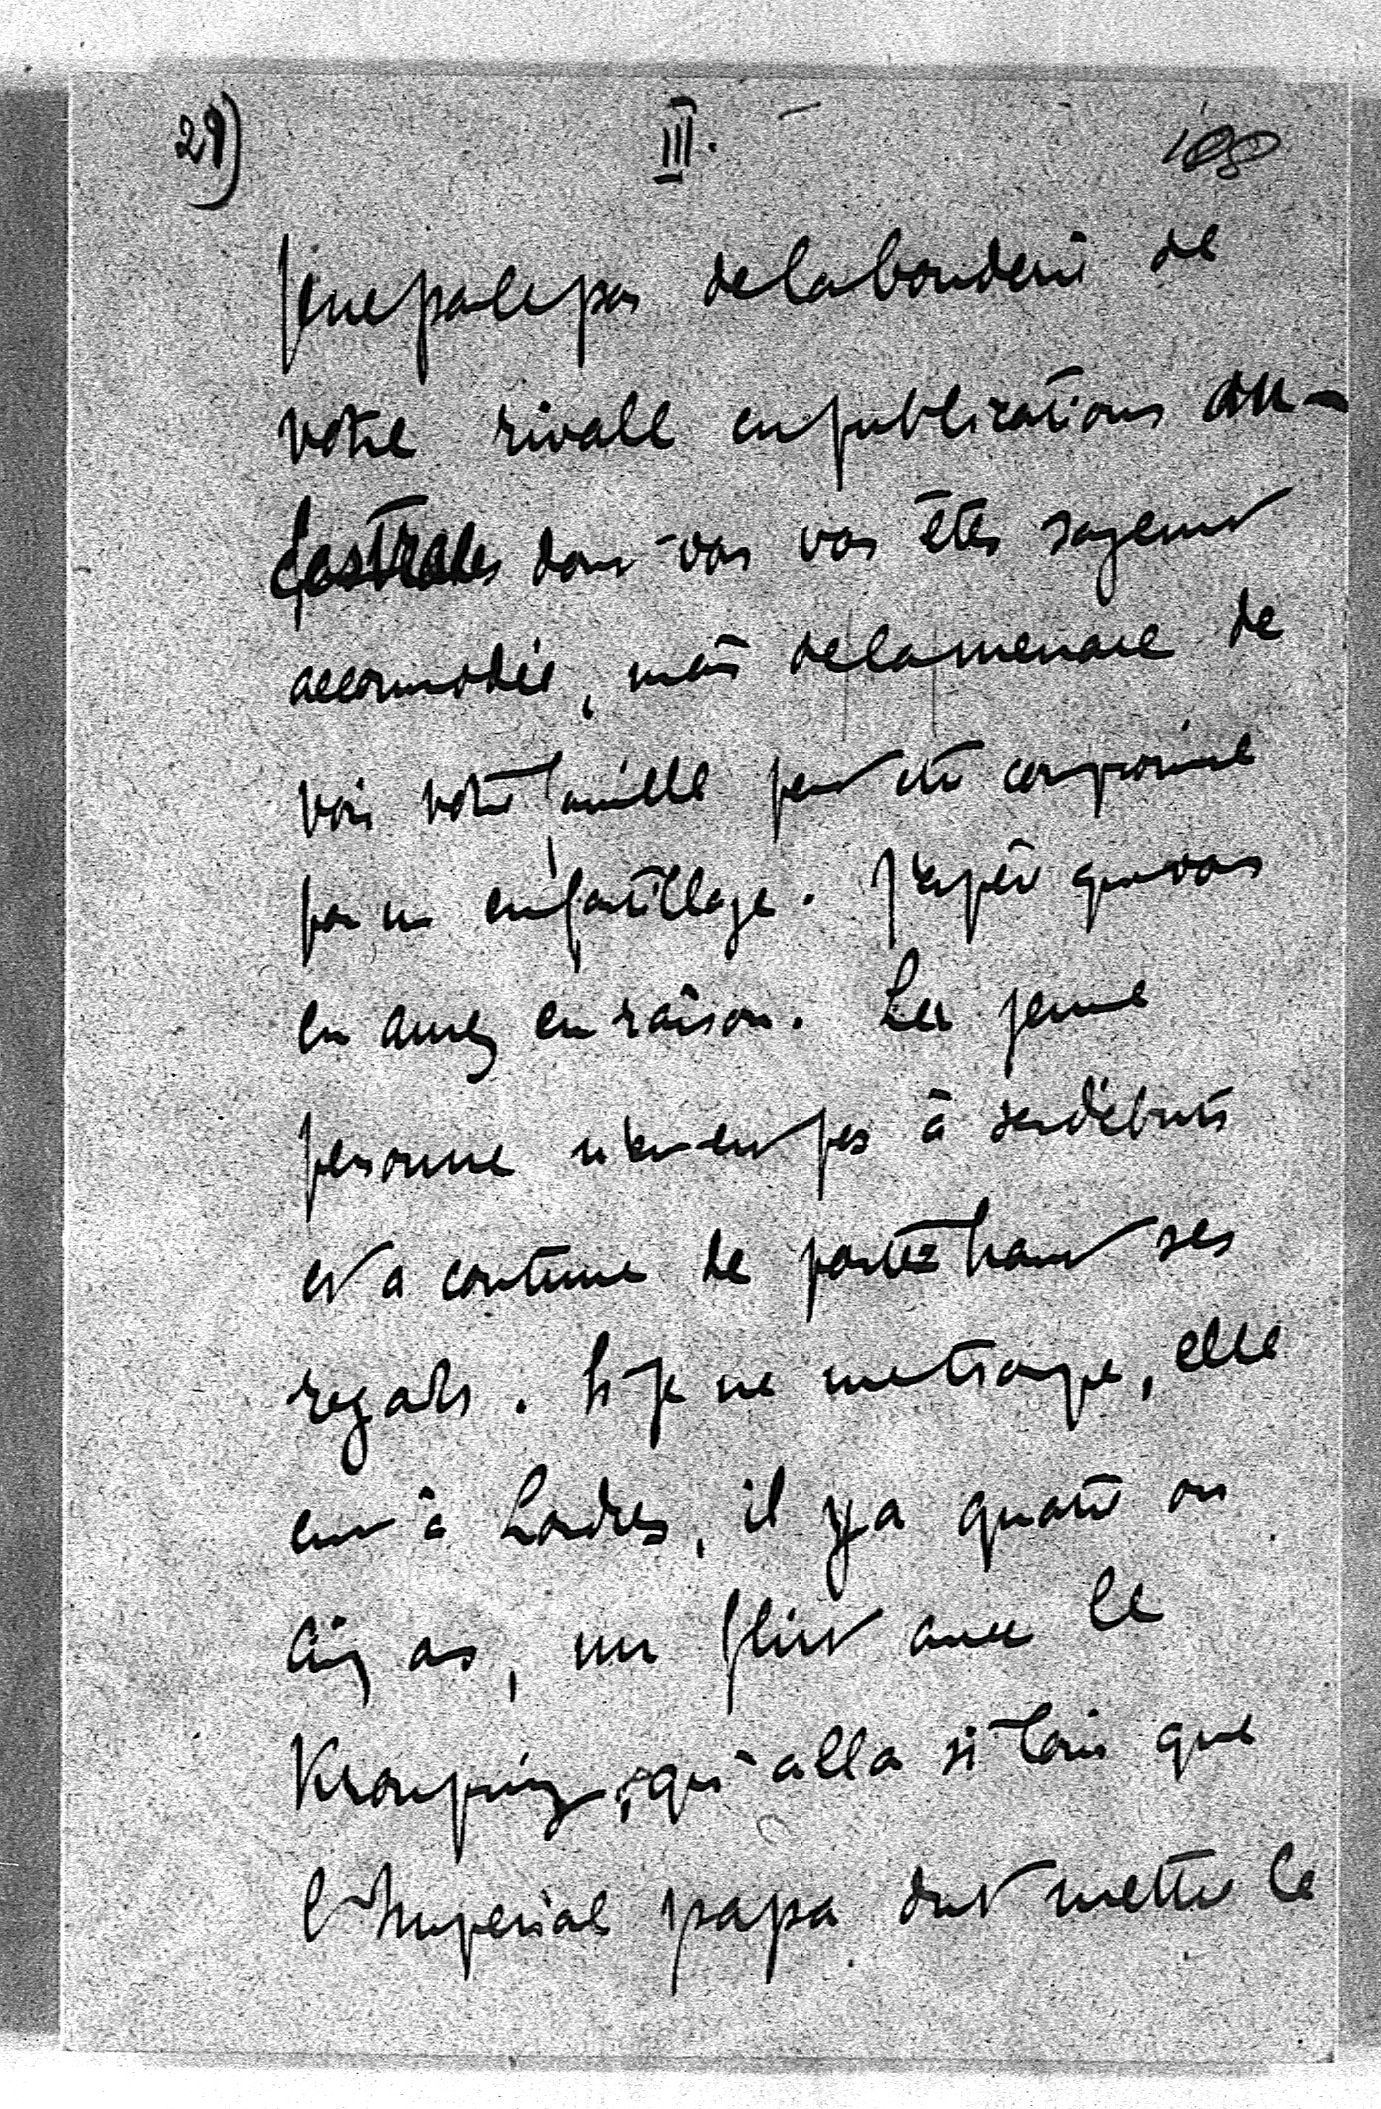 29) III. 198
Je ne parle pas de la bouderie de
votre rivale en publications an-
cestrales dont vous vous êtes sagement
accommodée, mais de la menace de
voir votre famille peut être compromise
par un enfantillage. J'espère que vous
en aurez eu raison. La jeune
personne n'en est pas à ses débuts
et a coutume de porter haut ses
regards. Si je ne me trompe, elle
eut à Londres, il y a quatre ou
cinq ans, un flirt avec le
Kronprinz, qui alla si loin que
l'Impérial papa dut mettre le